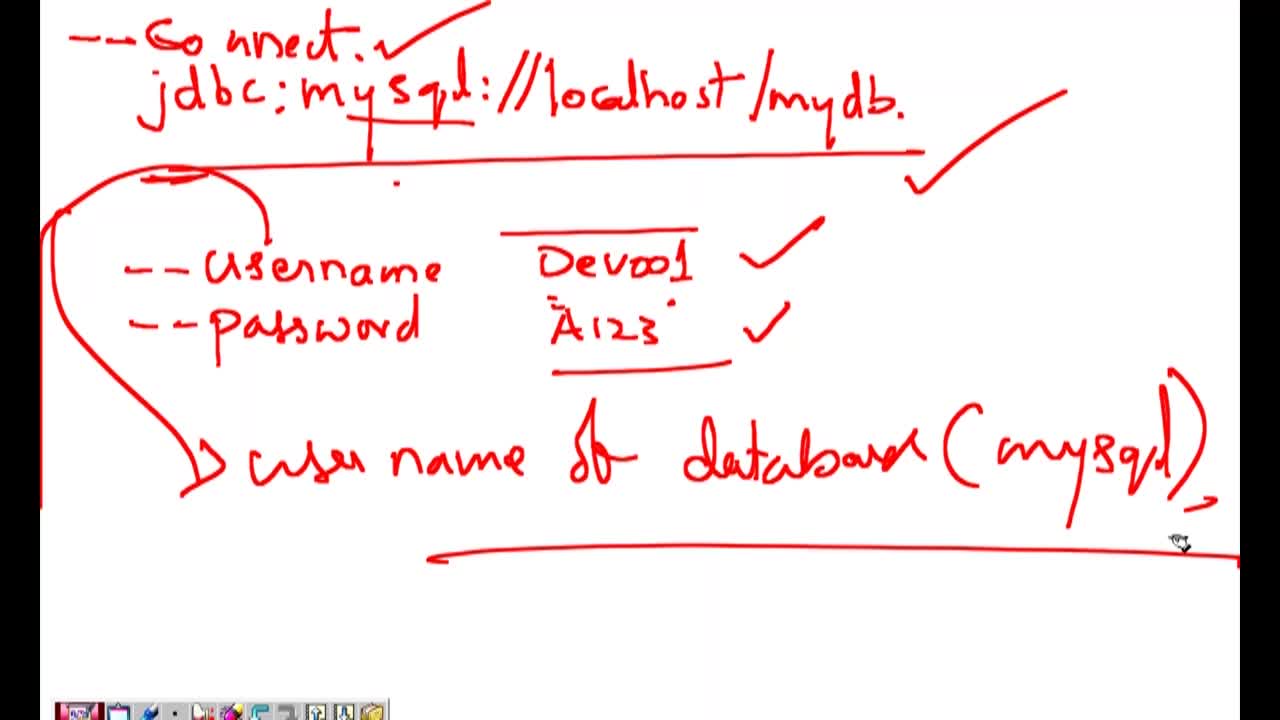 --Connect.
jdbc:mysql://localhost/mydb.
--username Dev001
--password A123
user name of database(mysql),